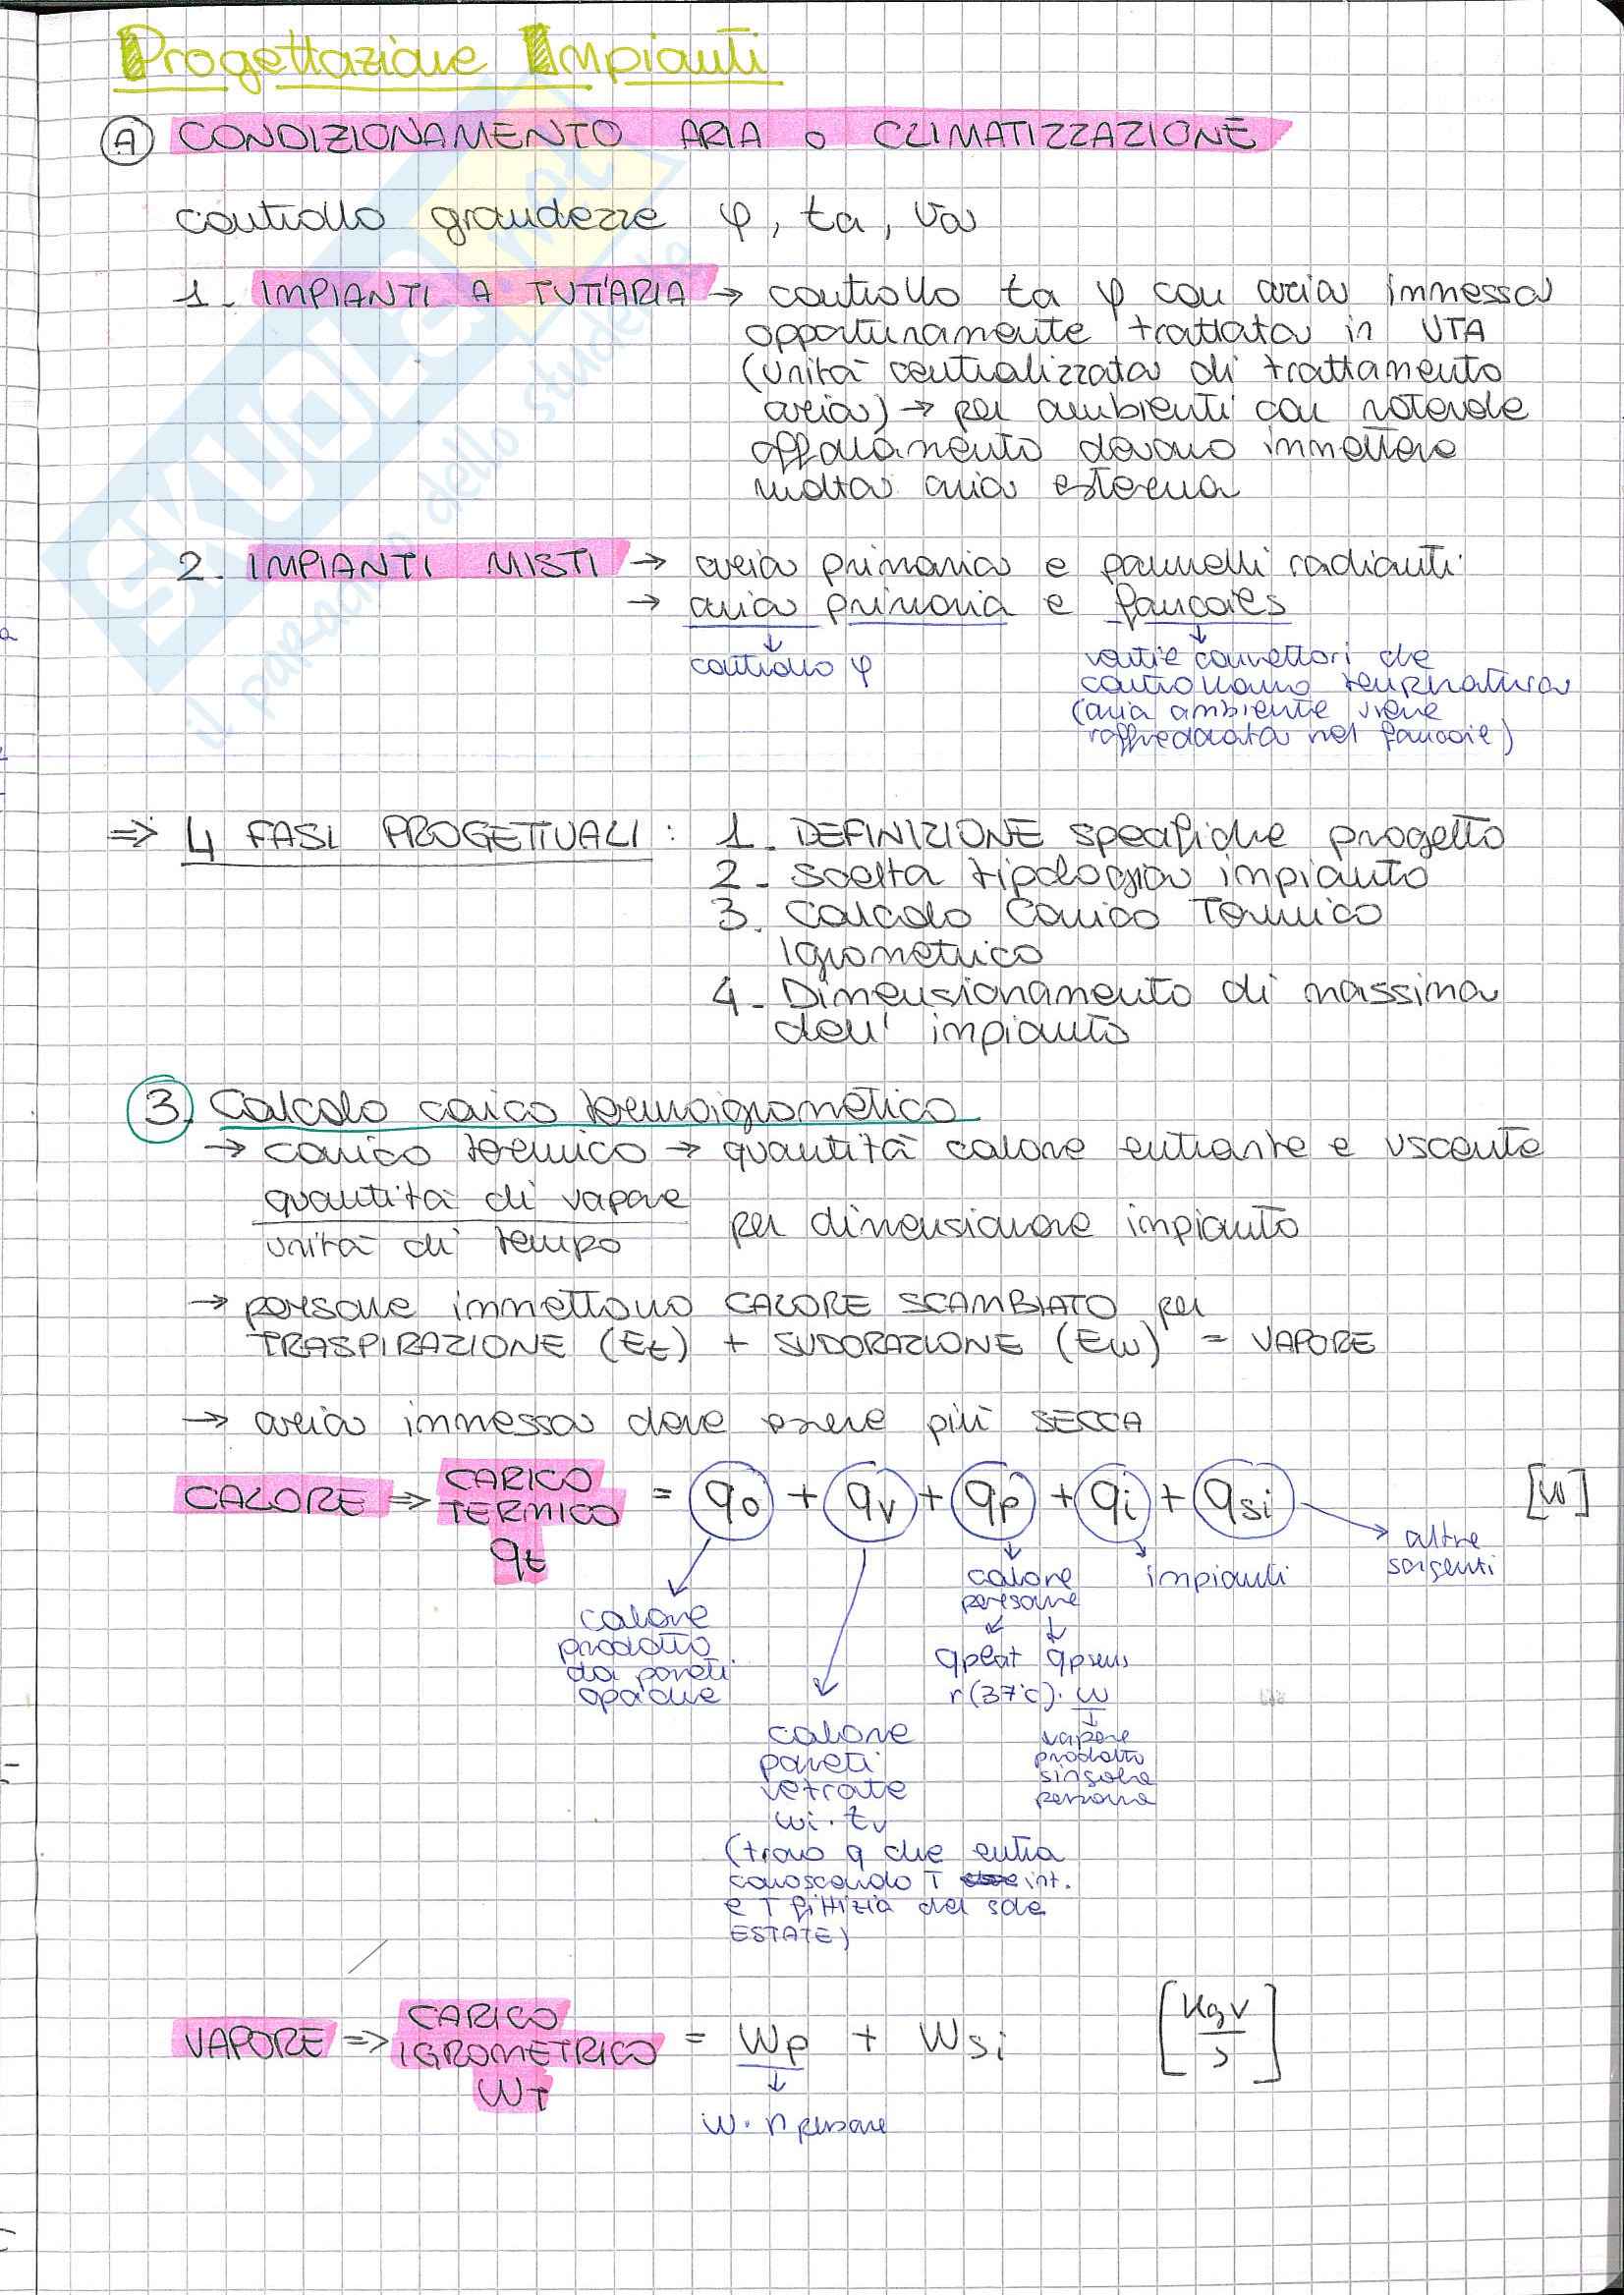 Progettazione Impianti
A CONDIZIONAMENTO ARIA O CLIMATIZZAZIONE
controllo grandezze φ, ta, va
1. IMPIANTI A TUTT'ARIA → controllo ta φ con aria immessa
opportunamente trattata in UTA
(unità centralizzata di trattamento
aria) → per ambienti con notevole
affollamento devono immettere
molta aria esterna
2. IMPIANTI MISTI → aria primaria e pannelli radianti
→ aria primaria e fancoils
↓ ↓
controllo φ
convettori che
controllano temperatura
(aria ambiente viene
raffreddata nel fancoil)
⇒ 4 FASI PROGETTUALI: 1. DEFINIZIONE specifiche progetto
2. Scelta tipologia impianto
3. Calcolo Carico Termico
Igrometrico
4. Dimensionamento di massima
dell' impianto
3. Calcolo carico termoigrometrico
→ carico termico → quantità calore entrante e uscente
quantità di vapore
unità di tempo
per dimensionare impianto
→ persone immettono CALORE SCAMBIATO per
TRASPIRAZIONE (Et) + SUDORAZIONE (Ew) = VAPORE
→ aria immessa deve essere più SECCA
CALORE ⇒ CARICO TERMICO qt = qo + qv + qp + qi + qsi [W]
altre
sorgenti
impianti
calore
persone
qplat qpsens
r(37°c)·w
↓
vapore
prodotto
singola
persona
calore
prodotto
da pareti
opache
calore
pareti
vetrate
wi·tv
(trovo q che entra
conoscendo T int.
e T fittizia del sole
ESTATE)
VAPORE ⇒ CARICO IGROMETRICO WT = Wp + Wsi [kgv/s]
↓
w·n persone
SKUOLA.net
il paradiso dello studente